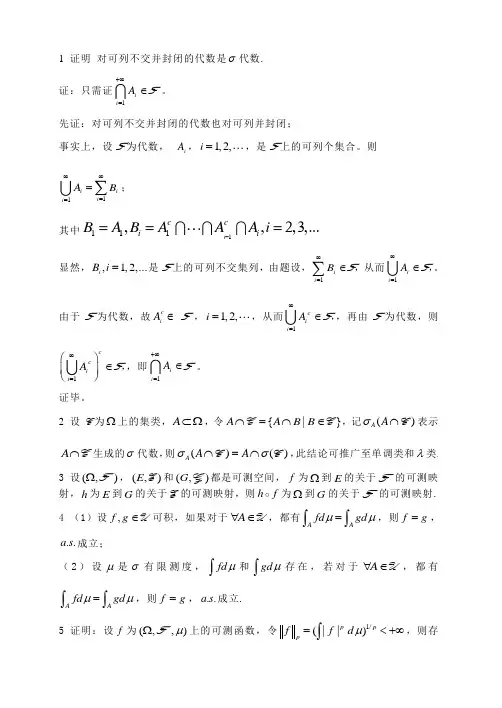 1 证明 对可列不交并封闭的代数是 σ 代数.
证：只需证 $\bigcap_{i=1}^{+\infty} A_i \in \mathscr{F}$。
先证：对可列不交并封闭的代数也对可列并封闭；
事实上，设 $\mathscr{F}$ 为代数， $A_i$，$i=1,2,\cdots$，是 $\mathscr{F}$ 上的可列个集合。则
$\bigcup_{i=1}^{\infty} A_i = \sum_{i=1}^{\infty} B_i$；
其中 $B_1 = A_1, B_i = A_1^c \bigcap \cdots \bigcap A_{i-1}^c \bigcap A_i, i = 2,3,...$
显然，$B_i, i=1,2,...$ 是 $\mathscr{F}$ 上的可列不交集列，由题设，$\sum_{i=1}^{\infty} B_i \in \mathscr{F}$ 从而 $\bigcup_{i=1}^{\infty} A_i \in \mathscr{F}$。
由于 $\mathscr{F}$ 为代数，故 $A_i^c \in \mathscr{F}$，$i=1,2,\cdots$，从而 $\bigcup_{i=1}^{\infty} A_i^c \in \mathscr{F}$，再由 $\mathscr{F}$ 为代数，则
$\left( \bigcup_{i=1}^{\infty} A_i^c \right)^c \in \mathscr{F}$，即 $\bigcap_{i=1}^{+\infty} A_i \in \mathscr{F}$。
证毕。
2 设 $\mathscr{C}$ 为 Ω 上的集类，$A \subset \Omega$，令 $A \cap \mathscr{C} = \{A \cap B \mid B \in \mathscr{C}\}$，记 $\sigma_A(A \cap \mathscr{C})$ 表示
$A \cap \mathscr{C}$ 生成的 σ 代数，则 $\sigma_A(A \cap \mathscr{C}) = A \cap \sigma(\mathscr{C})$，此结论可推广至单调类和 λ 类.
3 设 $(\Omega, \mathscr{F})$，$(E, \mathscr{E})$ 和 $(G, \mathscr{G})$ 都是可测空间，$f$ 为 Ω 到 $E$ 的关于 $\mathscr{F}$ 的可测映
射，$h$ 为 $E$ 到 $G$ 的关于 $\mathscr{E}$ 的可测映射，则 $h \circ f$ 为 Ω 到 $G$ 的关于 $\mathscr{F}$ 的可测映射.
4 （1）设 $f, g \in \mathscr{L}$ 可积，如果对于 $\forall A \in \mathscr{L}$，都有 $\int_A f d\mu = \int_A g d\mu$，则 $f = g$，
$a.s.$ 成立；
（2）设 μ 是 σ 有限测度，$\int f d\mu$ 和 $\int g d\mu$ 存在，若对于 $\forall A \in \mathscr{L}$，都有
$\int_A f d\mu = \int_A g d\mu$，则 $f = g$，$a.s.$ 成立.
5 证明：设 $f$ 为 $(\Omega, \mathscr{F}, \mu)$ 上的可测函数，令 $\|f\|_p = (\int |f|^p d\mu)^{1/p} < +\infty$，则存